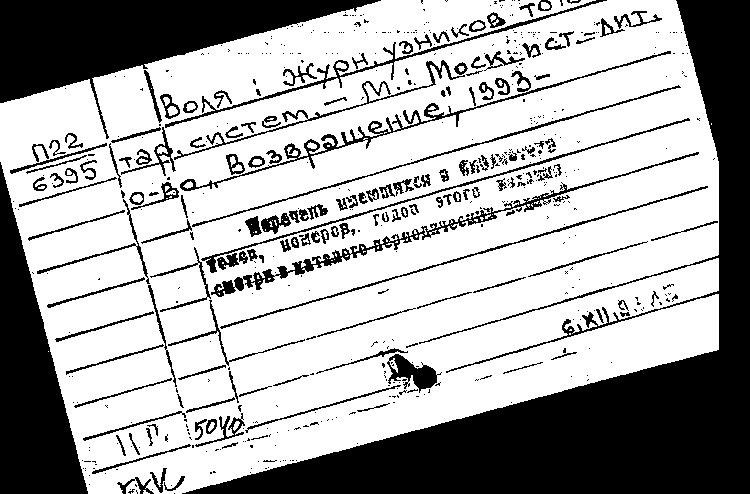 Воля : Журн. узников тота
тар. систем. — М.: Моск. ист.-лит.
о-во „Возвращение", 1993-
П22
6395
Перечень имеющихся в библиотеке
томов, номеров, годов этого издания
смотри в каталоге периодических изданий
6.XII.
11 Р. 5040
ГКК